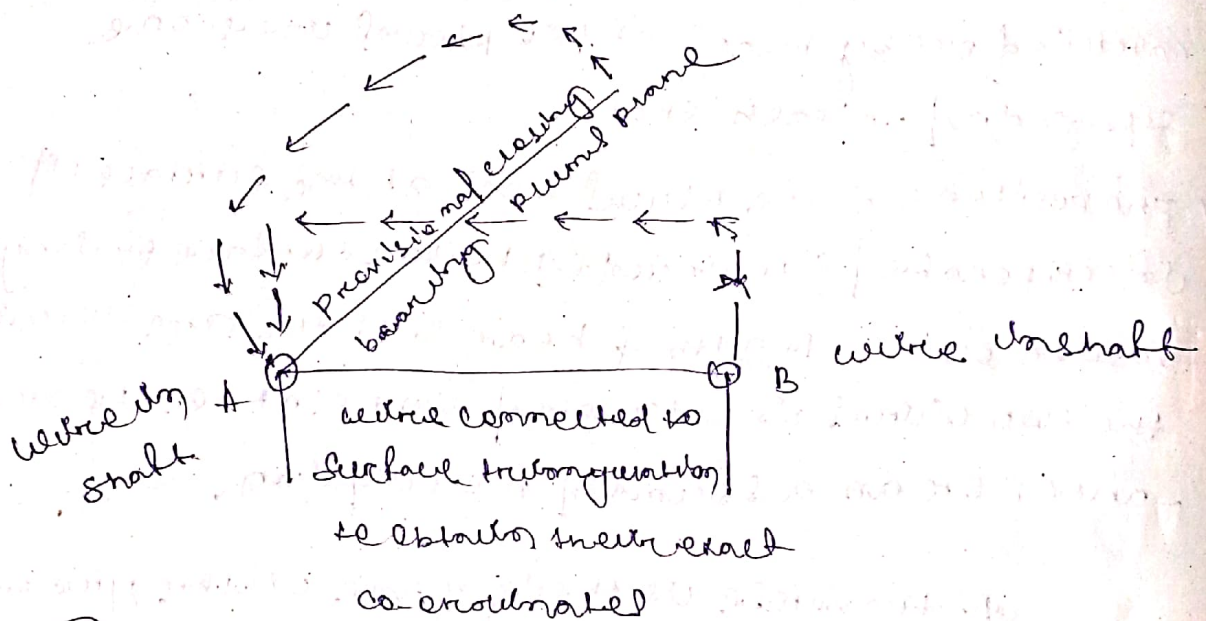 Provisional closing
bearing
plumb plane
wire in
shaft
A
B
wire in shaft
wire connected to
surface triangulation
to obtain their exact
co-ordinates